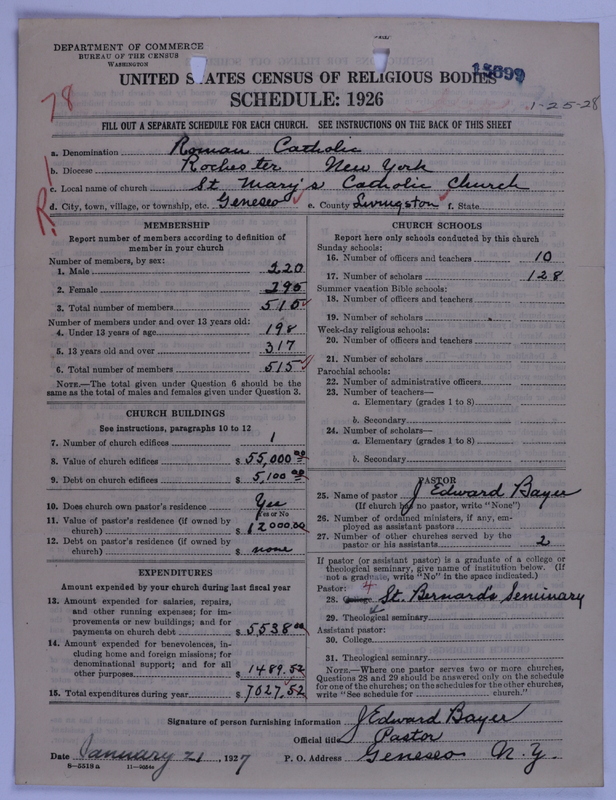 DEPARTMENT OF COMMERCE
BUREAU OF THE CENSUS
WASHINGTON
15699
UNITED STATES CENSUS OF RELIGIOUS BODIES
78
SCHEDULE: 1926
1-25-28
FILL OUT A SEPARATE SCHEDULE FOR EACH CHURCH. SEE INSTRUCTIONS ON THE BACK OF THIS SHEET
a. Denomination Roman Catholic
b. Diocese Rochester New York
c. Local name of church St. Mary's Catholic Church
d. City, town, village, or township, etc. Geneseo e. County Livingston f. State
MEMBERSHIP
Report number of members according to definition of
member in your church
Number of members, by sex:
1. Male 220
2. Female 295
3. Total number of members 515
Number of members under and over 13 years old:
4. Under 13 years of age 198
5. 13 years old and over 317
6. Total number of members 515
NOTE.—The total given under Question 6 should be the
same as the total of males and females given under Question 3.
CHURCH BUILDINGS
See instructions, paragraphs 10 to 12
7. Number of church edifices 1
8. Value of church edifices $ 55,000.00
9. Debt on church edifices $ 5,100.00
10. Does church own pastor's residence? Yes
Yes or No
11. Value of pastor's residence (if owned by
church) $ 12000.00
12. Debt on pastor's residence (if owned by
church) $ none
EXPENDITURES
Amount expended by your church during last fiscal year
13. Amount expended for salaries, repairs,
and other running expenses; for im-
provements or new buildings; and for
payments on church debt $ 5538.00
14. Amount expended for benevolences, in-
cluding home and foreign missions; for
denominational support; and for all
other purposes $ 1489.52
15. Total expenditures during year $ 7027.52
CHURCH SCHOOLS
Report here only schools conducted by this church
Sunday schools:
16. Number of officers and teachers 10
17. Number of scholars 128
Summer vacation Bible schools:
18. Number of officers and teachers
19. Number of scholars
Week-day religious schools:
20. Number of officers and teachers
21. Number of scholars
Parochial schools:
22. Number of administrative officers
23. Number of teachers—
a. Elementary (grades 1 to 8)
b. Secondary
24. Number of scholars—
a. Elementary (grades 1 to 8)
b. Secondary
PASTOR
25. Name of pastor J Edward Bayer
(If church has no pastor, write "None")
26. Number of ordained ministers, if any, em-
ployed as assistant pastors
27. Number of other churches served by the
pastor or his assistants 2
If pastor (or assistant pastor) is a graduate of a college or
theological seminary, give name of institution below. (If
not a graduate, write "No" in the space indicated.)
Pastor:
28. College St. Bernard's Seminary
29. Theological seminary
Assistant pastor:
30. College
31. Theological seminary
NOTE.—Where one pastor serves two or more churches,
Questions 28 and 29 should be answered only on the schedule
for one of the churches; on the schedules for the other churches,
write "See schedule for church."
Signature of person furnishing information J Edward Bayer
Official title Pastor
Date January 21, 1927 P. O. Address Geneseo N. Y.
8—5518a